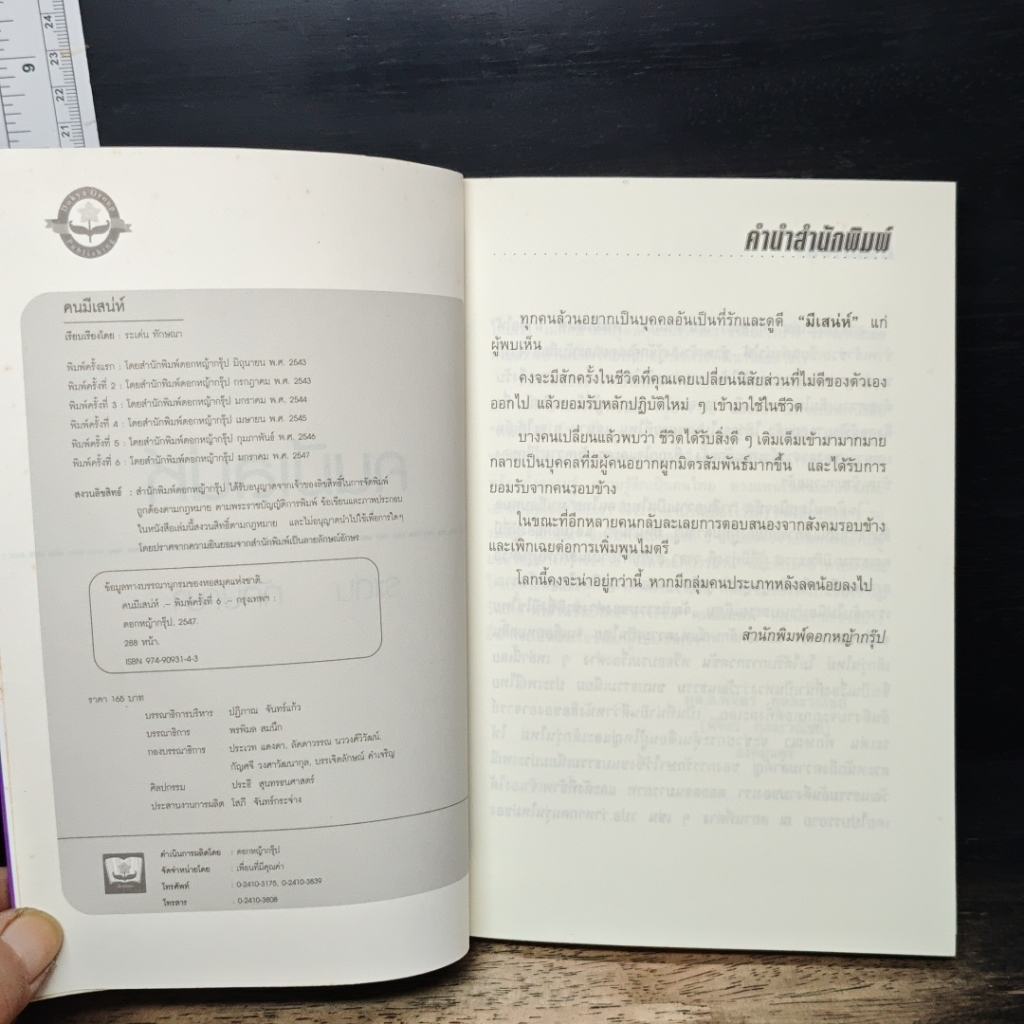 24
23
22
21
9
Dokya Group
Publishing
คนมีเสน่ห์
เรียบเรียงโดย : ระเด่น ทักษณา
พิมพ์ครั้งแรก : โดยสำนักพิมพ์ดอกหญ้ากรุ๊ป มิถุนายน พ.ศ. 2543
พิมพ์ครั้งที่ 2 : โดยสำนักพิมพ์ดอกหญ้ากรุ๊ป กรกฎาคม พ.ศ. 2543
พิมพ์ครั้งที่ 3 : โดยสำนักพิมพ์ดอกหญ้ากรุ๊ป มกราคม พ.ศ. 2544
พิมพ์ครั้งที่ 4 : โดยสำนักพิมพ์ดอกหญ้ากรุ๊ป เมษายน พ.ศ. 2545
พิมพ์ครั้งที่ 5 : โดยสำนักพิมพ์ดอกหญ้ากรุ๊ป กุมภาพันธ์ พ.ศ. 2546
พิมพ์ครั้งที่ 6 : โดยสำนักพิมพ์ดอกหญ้ากรุ๊ป มกราคม พ.ศ. 2547
สงวนลิขสิทธิ์ : สำนักพิมพ์ดอกหญ้ากรุ๊ป ได้รับอนุญาตจากเจ้าของลิขสิทธิ์ในการจัดพิมพ์
ถูกต้องตามกฎหมาย ตามพระราชบัญญัติการพิมพ์ ข้อเขียนและภาพประกอบ
ในหนังสือเล่มนี้สงวนสิทธิ์ตามกฎหมาย และไม่อนุญาตนำไปใช้เพื่อการใดๆ
โดยปราศจากความยินยอมจากสำนักพิมพ์เป็นลายลักษณ์อักษร
ข้อมูลทางบรรณานุกรมของหอสมุดแห่งชาติ.
คนมีเสน่ห์ .– พิมพ์ครั้งที่ 6 .– กรุงเทพฯ :
ดอกหญ้ากรุ๊ป, 2547.
288 หน้า.
ISBN 974-90931-4-3
ราคา 165 บาท
บรรณาธิการบริหาร ปฏิภาณ จันทร์แก้ว
บรรณาธิการ พรพิมล สมนึก
กองบรรณาธิการ ประเวท แดงดา, ลัดดาวรรณ นาวงศ์วิวัฒน์,
กัญศจี วงศาวัฒนากุล, บรรเจิดลักษณ์ คำเจริญ
ศิลปกรรม ประธี สุนทรธนศาสตร์
ประสานงานการผลิต โสภี จันทร์กระจ่าง
ดำเนินการผลิตโดย : ดอกหญ้ากรุ๊ป
จัดจำหน่ายโดย : เพื่อนที่มีคุณค่า
โทรศัพท์ : 0-2410-3175, 0-2410-3839
โทรสาร : 0-2410-3808
คำนำสำนักพิมพ์
ทุกคนล้วนอยากเป็นบุคคลอันเป็นที่รักและดูดี “มีเสน่ห์” แก่
ผู้พบเห็น
คงจะมีสักครั้งในชีวิตที่คุณเคยเปลี่ยนนิสัยส่วนที่ไม่ดีของตัวเอง
ออกไป แล้วยอมรับหลักปฏิบัติใหม่ ๆ เข้ามาใช้ในชีวิต
บางคนเปลี่ยนแล้วพบว่า ชีวิตได้รับสิ่งดี ๆ เติมเต็มเข้ามามากมาย
กลายเป็นบุคคลที่มีผู้คนอยากผูกมิตรสัมพันธ์มากขึ้น และได้รับการ
ยอมรับจากคนรอบข้าง
ในขณะที่อีกหลายคนกลับละเลยการตอบสนองจากสังคมรอบข้าง
และเพิกเฉยต่อการเพิ่มพูนไมตรี
โลกนี้คงจะน่าอยู่กว่านี้ หากมีกลุ่มคนประเภทหลังลดน้อยลงไป
สำนักพิมพ์ดอกหญ้ากรุ๊ป